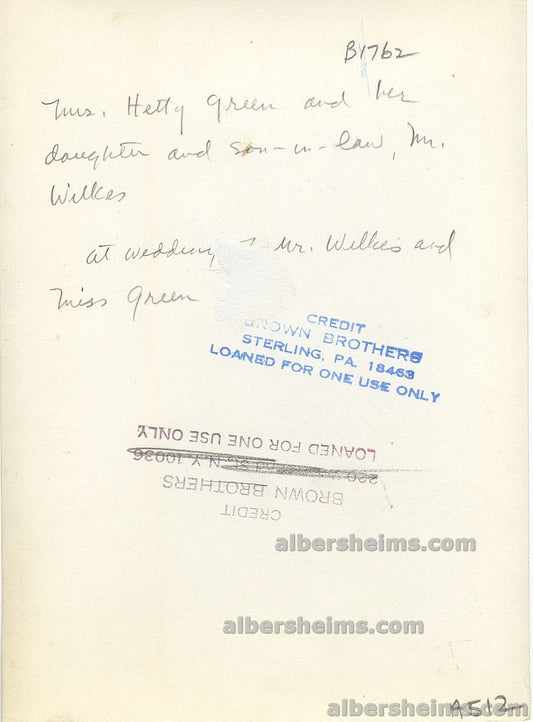 B1762
Mrs. Hetty Green and her
daughter and son-in-law, Mr.
Wilkes
at wedding Mr. Wilkes and
Miss Green
CREDIT
BROWN BROTHERS
STERLING, PA. 18463
LOANED FOR ONE USE ONLY
LOANED FOR ONE USE ONLY.
220 St. N.Y. 10036
BROWN BROTHERS
CREDIT
albersheims.com
albersheims.com
albersheims.com
A512